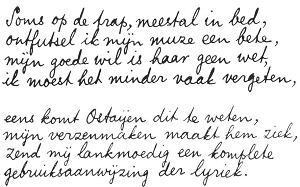 Soms op de trap, meestal in bed,
ontfutsel ik mijn muze een bete,
mijn goede wil is haar geen wet,
ik moest het minder vaak vergeten,
eens komt Ostaijen dit te weten,
mijn verzenmaken maakt hem ziek,
zend mij lankmoedig een komplete
gebruiksaanwijzing der lyriek.